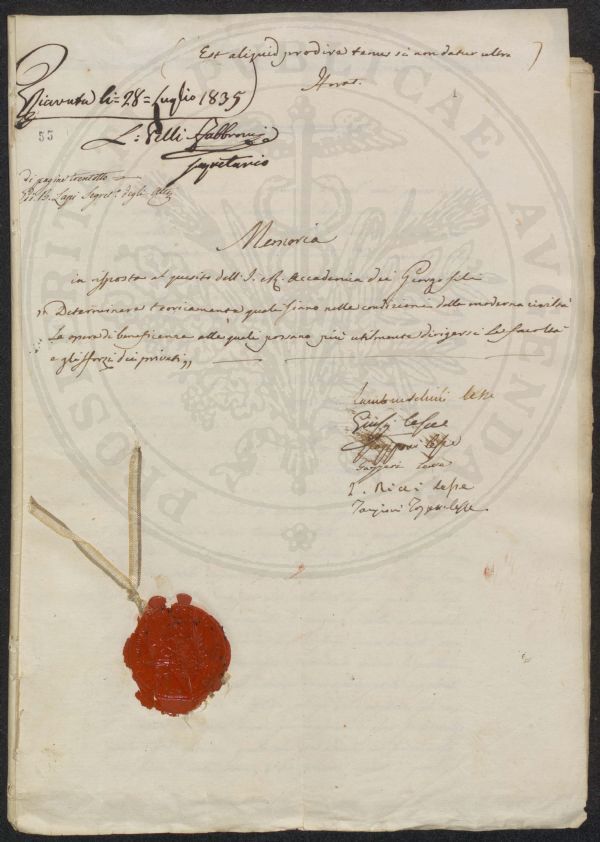 Est aliquid prodire tenus si non datur ultra
Horat.
Ricevuta li = 28 = Luglio 1835
53
L: Pelli Fabbroni
Segretario
di pagine trentotto
Lapi Segret.º degli Atti
Memoria
in risposta al quesito dell'I. e R. Accademia dei Georgofili
" Determinare teoricamente quali siano nelle condizioni della moderna civiltà
le opere di beneficenza alle quali possano più utilmente dirigersi le facoltà
e gli sforzi dei privati "
Lambruschini lesse
Giusti lesse
lesse
Gazzeri lesse
L. Ricci lesse
Targioni Tozzetti lesse
PROSPERITATI PUBLICAE AUGENDAE